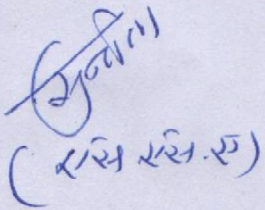 सुनीता
(एस.एस.ए)